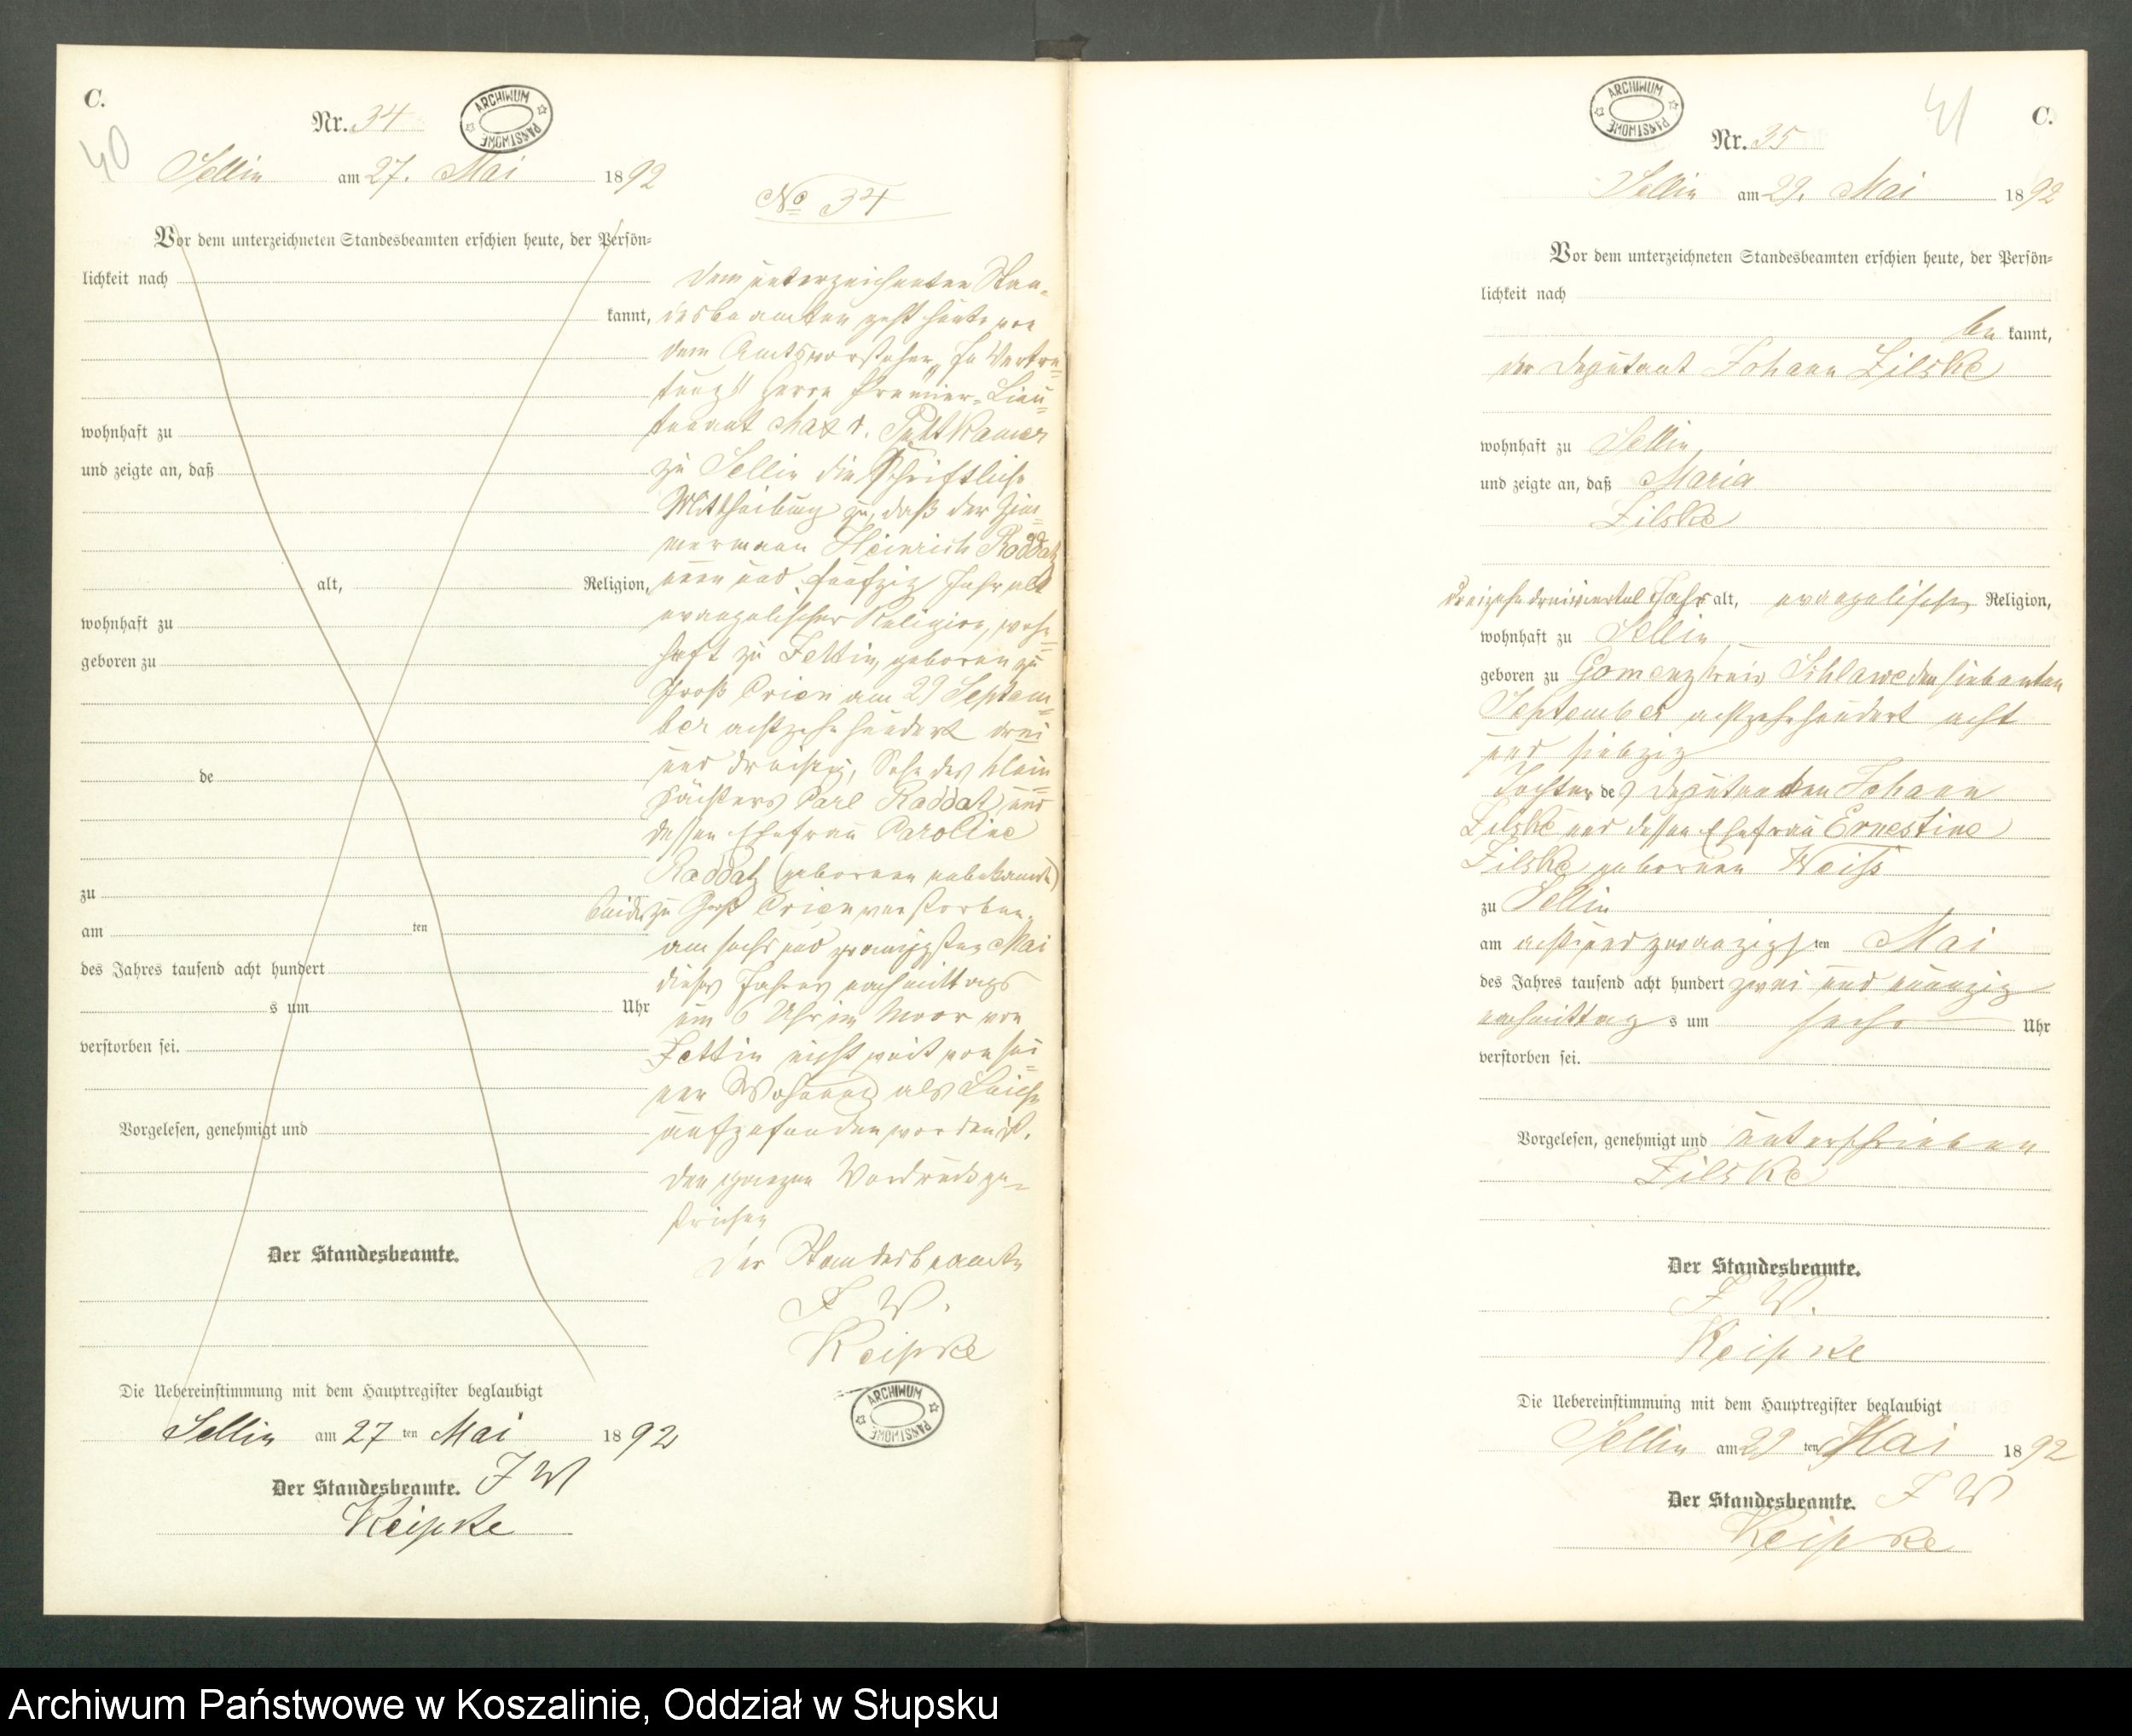 C.
40
Nr. 34
ARCHIWUM PAŃSTWOWE
Sellin am 27. Mai 1892
Vor dem unterzeichneten Standesbeamten erschien heute, der Persön-
lichkeit nach
kannt,
wohnhaft zu
und zeigte an, daß
alt, Religion,
wohnhaft zu
geboren zu
de
zu
am ten
des Jahres tausend acht hundert
s um Uhr
verstorben sei.
Vorgelesen, genehmigt und
Der Standesbeamte.
Die Uebereinstimmung mit dem Hauptregister beglaubigt
Sellin am 27 ten Mai 1892
Der Standesbeamte. I W
Keipke
No 34
Dem unterzeichneten Stan-
desbeamten geht heute von
dem Amtsvorsteher „In Vertre-
tung" Herrn Premier-Lieu-
tenant Max v. Puttkamer
zu Sellin die schriftliche
Mittheilung zu, daß der Zim-
mermann Heinrich Raddatz
neun und fünfzig Jahr alt
evangelischer Religion, wohn-
haft zu Zettin, geboren zu
Groß Crien am 29 Septem-
ber achtzehn hundert drei
und dreißig, Sohn des Klein
pächters Carl Raddatz und
dessen Ehefrau Caroline
Raddatz (geborenen unbekannt)
beide zu Groß Crien verstorben,
am sechs und zwanzigsten Mai
dieses Jahres nachmittags
um 6 Uhr im Moor von
Zettin nicht weit von sei-
ner Wohnung als Leiche
aufgefunden worden ist.
Den ganzen Vordruck ge-
strichen
Der Standesbeamte
I W.
Keipke
ARCHIWUM PAŃSTWOWE
ARCHIWUM PAŃSTWOWE
41
C.
Nr. 35
Sellin am 29. Mai 1892
Vor dem unterzeichneten Standesbeamten erschien heute, der Persön-
lichkeit nach
be kannt,
der Deputant Johann Zilske
wohnhaft zu Sellin
und zeigte an, daß Maria
Zilske
dreizehn dreiviertel Jahr alt, evangelischer Religion,
wohnhaft zu Sellin
geboren zu Gomenz Kreis Schlawe den siebenten
September achtzehnhundert acht
und siebzig
Tochter des Deputanten Johann
Zilske und dessen Ehefrau Ernestine
Zilske geborenen Weiß
zu Sellin
am acht und zwanzigsten Mai
des Jahres tausend acht hundert zwei und neunzig
nachmittag s um sechs Uhr
verstorben sei.
Vorgelesen, genehmigt und unterschrieben
Zilske
Der Standesbeamte.
I W.
Keipke
Die Uebereinstimmung mit dem Hauptregister beglaubigt
Sellin am 29 ten Mai 1892
Der Standesbeamte. I W
Keipke
Archiwum Państwowe w Koszalinie, Oddział w Słupsku